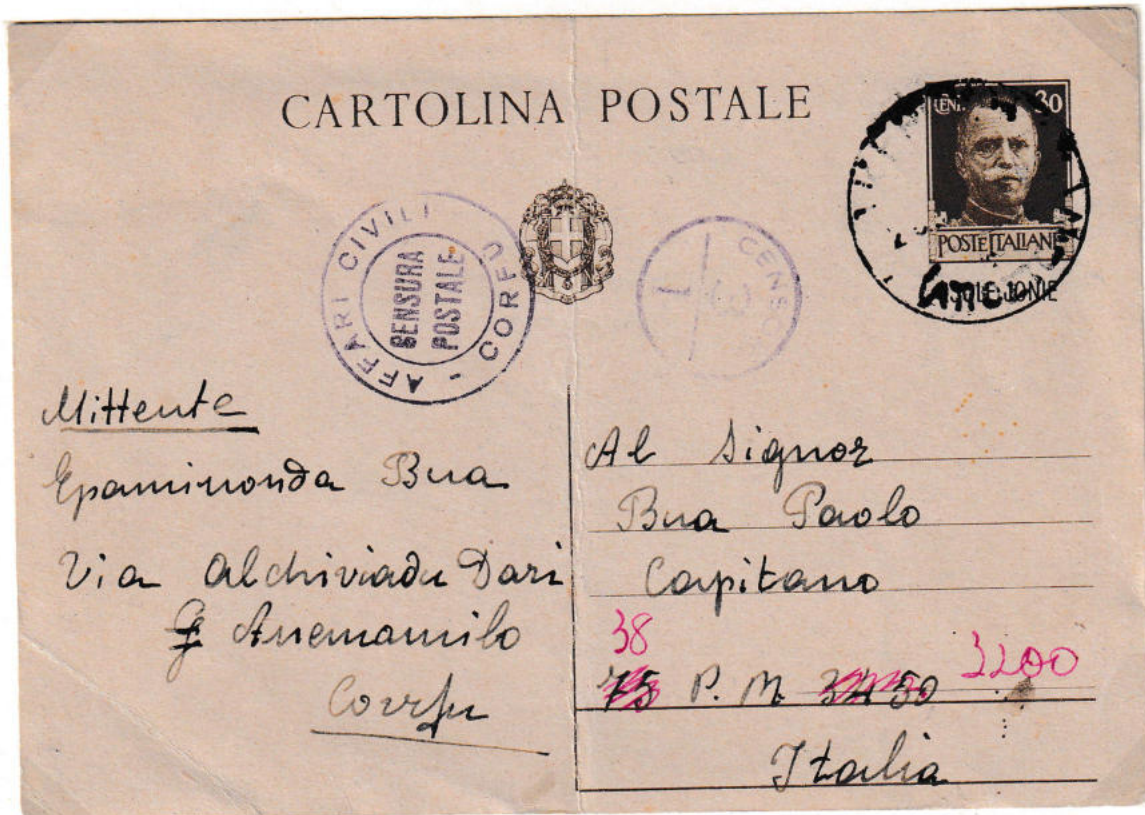 CARTOLINA POSTALE
CENT. 30
POSTE ITALIANE
ISOLE JONIE
AFFARI CIVILI - CORFU
CENSURA
POSTALE
CENSO
3
Mittente
Epaminonda Bua
Via Alchiviadu Dari
Anemamilo
Corfu
Al Signor
Bua Paolo
Capitano
38
75 P. M. 3430 3200
Italia